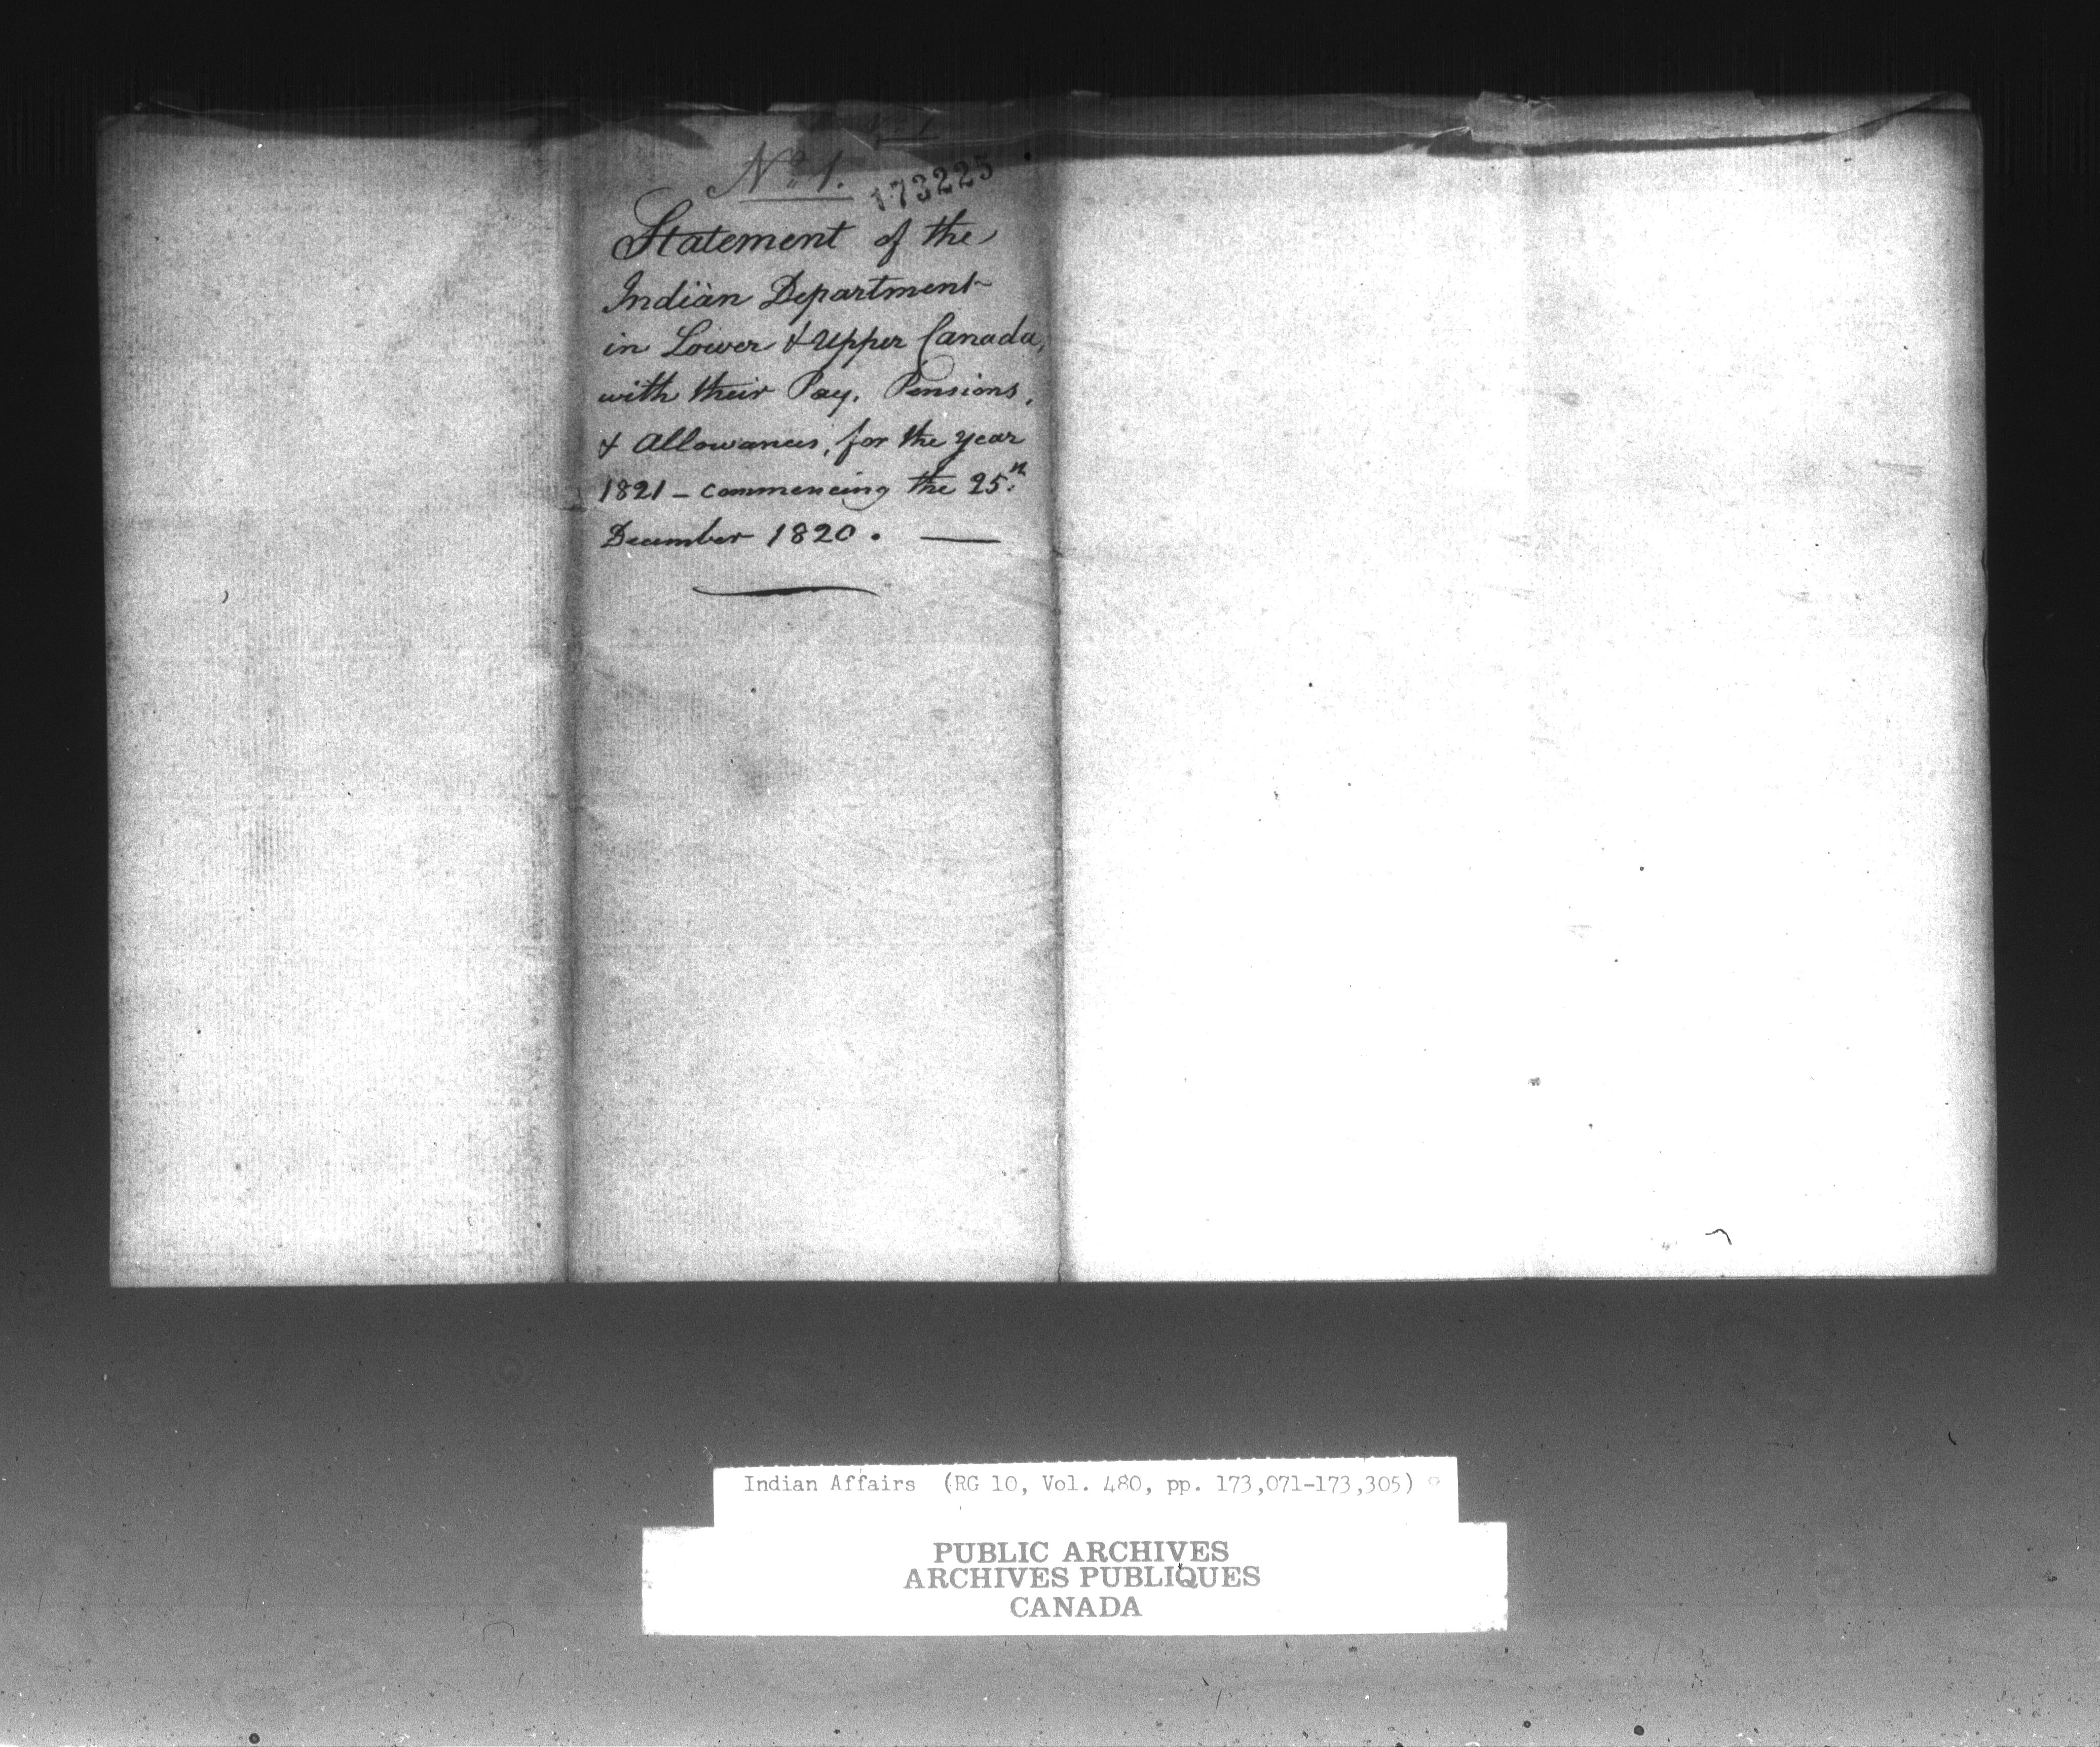 No 1
No 1.
173223
Statement of the
Indian Department
in Lower & Upper Canada,
with their Pay, Pensions,
& Allowances, for the year
1821 - commencing the 25th
December 1820. —
Indian Affairs (RG 10, Vol. 480, pp. 173,071-173,305)
PUBLIC ARCHIVES
ARCHIVES PUBLIQUES
CANADA